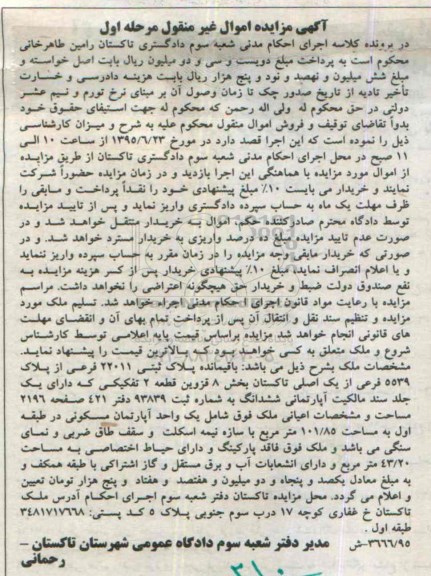 آگهی مزایده اموال غیر منقول مرحله اول
در پرونده کلاسه اجرای احکام مدنی شعبه سوم دادگستری تاکستان رامین طاهرخانی
محکوم است به پرداخت مبلغ دویست و سی و دو میلیون ریال بابت اصل خواسته و
مبلغ شش میلیون و نهصد و نود و پنج هزار ریال بابت هزینه دادرسی و خسارت
تأخیر تادیه از تاریخ صدور چک تا زمان وصول آن بر مبنای نرخ تورم و نیم عشر
دولتی در حق محکوم له ولی اله رحمن که محکوم له جهت استیفای حقوق خود
بدواً تقاضای توقیف و فروش اموال منقول محکوم علیه به شرح و میزان کارشناسی
ذیل را نموده است که این اجرا قصد دارد در مورخ ۱۳۹۵/۶/۲۳ از ساعت ۱۰ الی
۱۱ صبح در محل اجرای احکام مدنی شعبه سوم دادگستری تاکستان از طریق مزایده
از اموال مورد مزایده با هماهنگی این اجرا بازدید و در زمان مزایده حضوراً شرکت
نمایند و خریدار می بایست ۱۰٪ مبلغ پیشنهادی خود را نقداً پرداخت و مابقی را
ظرف مهلت یک ماه به حساب سپرده دادگستری واریز نماید و پس از تایید مزایده
توسط دادگاه محترم صادرکننده حکم، اموال به خریدار منتقل خواهد شد و در
صورت عدم تایید مزایده مبلغ ده درصد واریزی به خریدار مسترد خواهد شد. و در
صورتی که خریدار مابقی وجه مزایده را در زمان مقرر به حساب سپرده واریز ننماید
و یا اعلام انصراف نماید، مبلغ ۱۰٪ پیشنهادی خریدار پس از کسر هزینه مزایده به
نفع صندوق دولت ضبط و خریدار حق هیچگونه اعتراضی را نخواهد داشت. مراسم
مزایده با رعایت مواد قانون اجرای احکام مدنی اجراء خواهد شد. تسلیم ملک مورد
مزایده و تنظیم سند نقل و انتقال آن پس از پرداخت تمام بهای آن و انقضای مهلت
های قانونی انجام خواهد شد مزایده براساس قیمت پایه اعلامی توسط کارشناس
شروع و ملک متعلق به کسی خواهد بود که بالاترین قیمت را پیشنهاد نماید.
مشخصات ملک بشرح ذیل می باشد: باقیمانده پلاک ثبتی ۲۲۰۱۱ فرعی از پلاک
۵۵۳۹ فرعی از یک اصلی تاکستان بخش ۸ قزوین قطعه ۲ تفکیکی که دارای یک
جلد سند مالکیت آپارتمانی ششدانگ به شماره ثبت ۹۳۸۳۹ دفتر ۴۲۱ صفحه ۲۱۹۶
مساحت و مشخصات اعیانی ملک فوق شامل یک واحد آپارتمان مسکونی در طبقه
اول به مساحت ۱۰۱/۸۵ متر مربع با سازه نیمه اسکلت و سقف طاق ضربی و نمای
سنگی می باشد و ملک فوق فاقد پارکینگ و دارای حیاط اختصاصی به مساحت
۴۳/۲۰ متر مربع و دارای انشعابات آب و برق مستقل و گاز اشتراکی با طبقه همکف و
به مبلغ معادل یکصد و پنجاه و دو میلیون و هفتصد و هفتاد و پنج هزار تومان تعیین
و اعلام می گردد. محل مزایده تاکستان دفتر شعبه سوم اجرای احکام آدرس ملک
تاکستان خ غفاری کوچه ۱۷ درب سوم جنوبی پلاک ۵ کد پستی: ۳۴۸۱۷۱۷۶۶۸
طبقه اول .
۳۶۶۶/۹۵-ش مدیر دفتر شعبه سوم دادگاه عمومی شهرستان تاکستان –
رحمانی